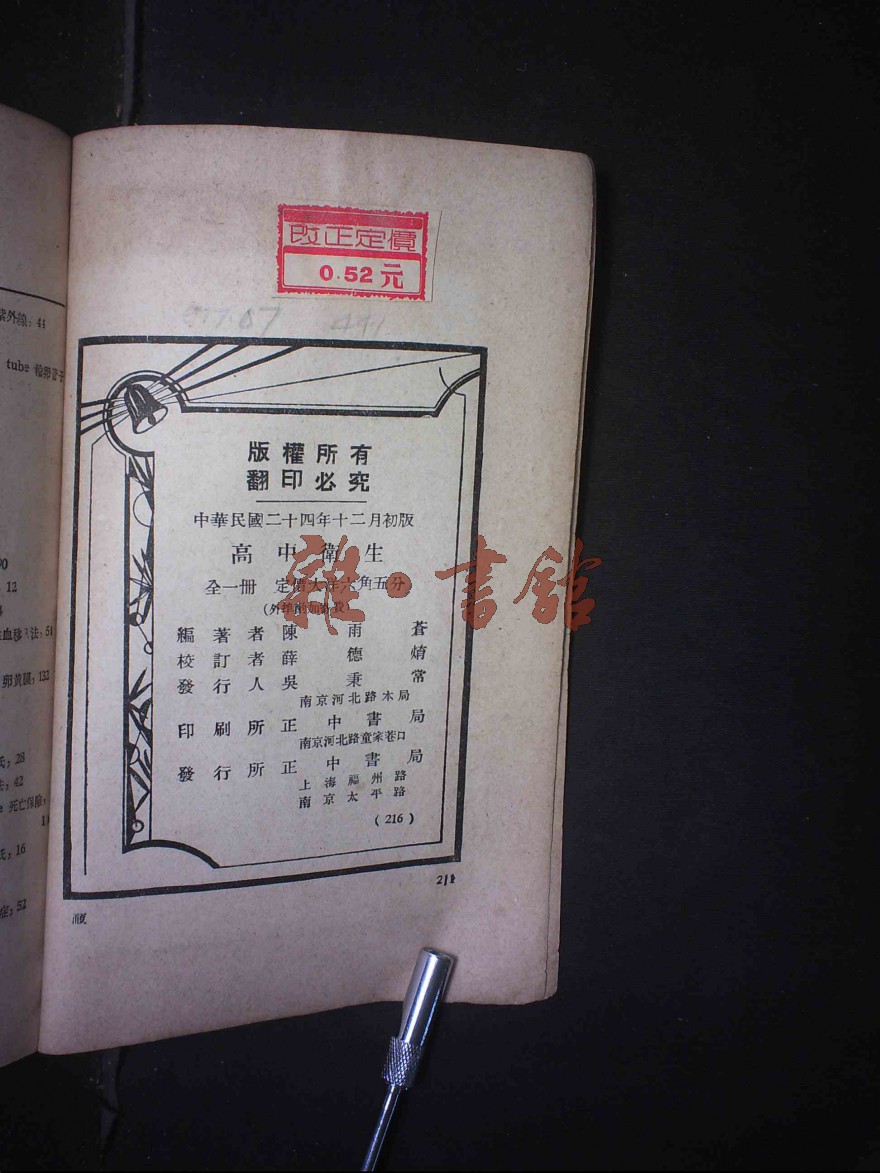 紫外線, 44
tube 輸卵管子
12
血移入法, 54
卵黃膜, 132
氏, 28
法, 42
死亡保險,
氏, 16
症, 52
改正定價
0.52元
版權所有
翻印必究
中華民國二十四年十二月初版
高中衛生
全一冊 定價大洋六角五分
(外埠酌加郵費)
編著者陳雨蒼
校訂者薛德焴
發行人吳秉常
南京河北路本局
印刷所正中書局
南京河北路童家巷口
發行所正中書局
上海福州路
南京太平路
(216)
2/1
雜·書館